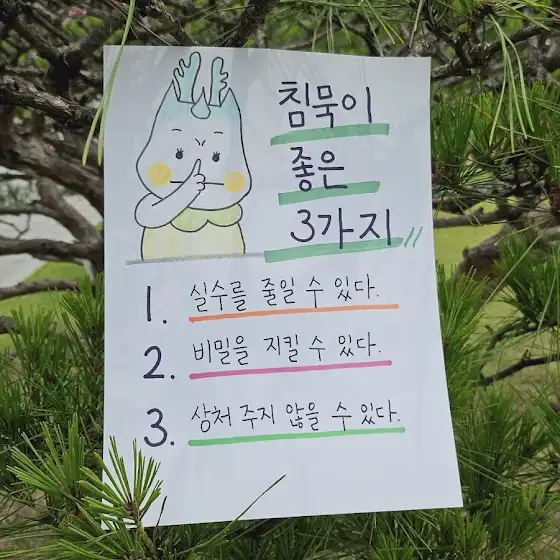 침묵이
좋은
3가지
1. 실수를 줄일 수 있다.
2. 비밀을 지킬 수 있다.
3. 상처 주지 않을 수 있다.